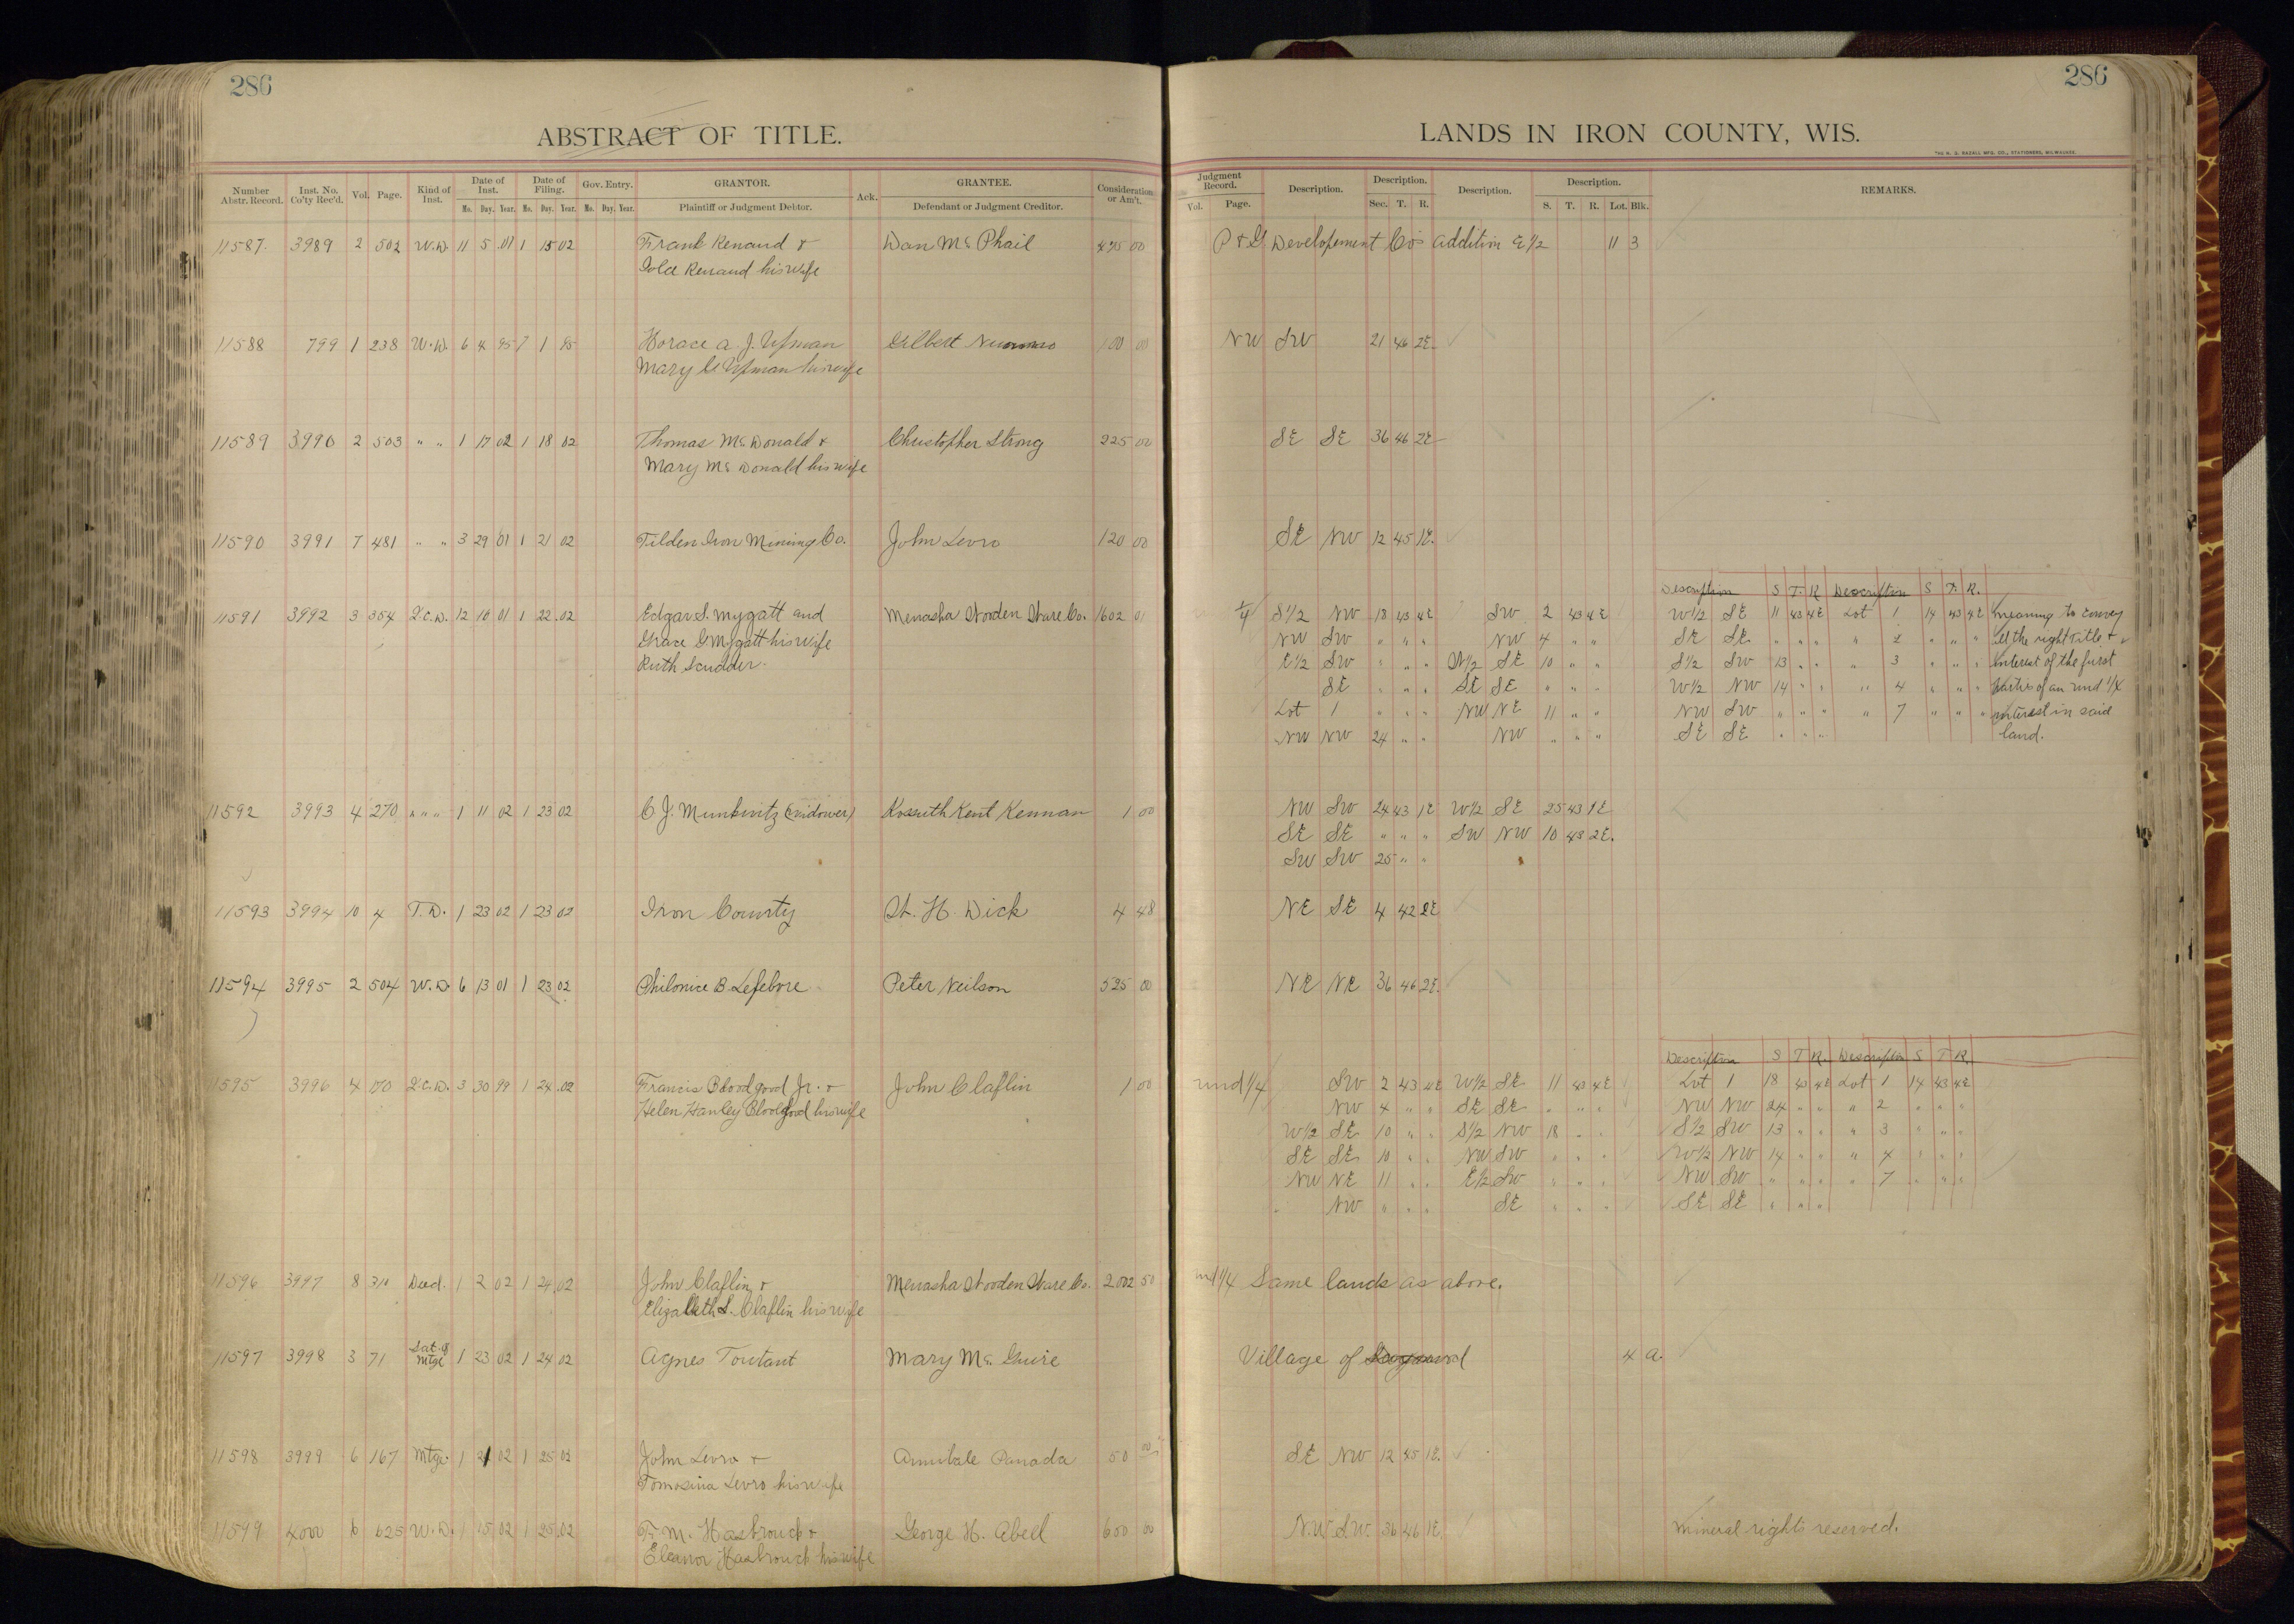 286
ABSTRACT OF TITLE.
Number Abstr. Record. Inst. No. Co'ty Rec'd. Vol. Page. Kind of Inst. Date of Inst. Date of Filing. Gov. Entry. GRANTOR. Ack. GRANTEE. Consideration or Am't.
Mo. Day. Year. Mo. Day. Year. Mo. Day. Year. Plaintiff or Judgment Debtor. Defendant or Judgment Creditor.
11587 3989 2 502 W.D. 11 5 01 1 15 02 Frank Renaud & Dan Mc Phail 475 00
Renaud his wife
11588 799 1 238 W.D. 6 4 95 7 1 95 Horace A. J. Upman Gilbert 100 00
Mary Upman his wife
11589 3990 2 503 " " 1 17 02 1 18 02 Thomas McDonald & Christopher Strong 225 00
Mary McDonald his wife
11590 3991 7 481 " " 3 29 01 1 21 02 Tilden Iron Mining Co. John Levro 120 00
11591 3992 3 354 Q.C.D. 12 10 01 1 22 02 Edgar S. Mygatt and Menasha Wooden Ware Co. 1602 01
Grace G. Mygatt his wife
Ruth Scudder
11592 3993 4 270 " " " 1 11 02 1 23 02 C J. Munkwitz (widower) Kossuth Kent Kennan 1 00
11593 3994 10 4 T.D. 1 23 02 1 23 02 Iron County W. H. Dick 4 48
11594 3995 2 504 W.D. 6 13 01 1 23 02 Philonice B. Lefebvre Peter Neilson 525 00
11595 3996 4 170 Q.C.D. 3 30 99 1 24 02 Francis Bloodgood Jr. & John Claflin 1 00
Helen Hawley Bloodgood his wife
11596 3997 8 310 Deed. 1 2 02 1 24 02 John Claflin & Menasha Wooden Ware Co. 2002 50
Elizabeth S. Claflin his wife
11597 3998 3 71 Sat. of Mtge 1 23 02 1 24 02 Agnes Toutant Mary Mc Guire
11598 3999 6 167 Mtge. 1 21 02 1 25 02 John Levro & Annibale Panada 50 00
Tomasina Levro his wife
11599 4000 6 625 W.D. 1 15 02 1 25 02 F. M. Hasbrouck & George H. Abell 600 00
Eleanor Hasbrouck his wife
286
LANDS IN IRON COUNTY, WIS.
Judgment Record. Description. Description. Description. Description. REMARKS.
Vol. Page. Sec. T. R. S. T. R. Lot. Blk.
P & G Developement Co's Addition E 1/2 11 3
NW SW 21 46 2E.
SE SE 36 46 2E
SE NW 12 45 1E.
Description S T. R Description S T. R.
1/4 S 1/2 NW 18 43 4E SW 2 43 4E W 1/2 SE 11 43 4E Lot 1 14 43 4E meaning to convey
NW SW " " " NW 4 " " SE SE " " " " 2 " " " all the right title &
E 1/2 SW " " " W 1/2 SE 10 " " S 1/2 SW 13 " " " 3 " " " interest of the first
SE " " " SE SE " " " W 1/2 NW 14 " " " 4 " " " parties of an und 1/4
Lot 1 " " " NW NE 11 " " NW SW " " " " 7 " " " interest in said
NW NW 24 " " NW " " " SE SE " " " land.
NW SW 24 43 1E W 1/2 SE 25 43 1E
SE SE " " " SW NW 10 43 2E.
SW SW 25 " "
NE SE 4 42 2E
NE NE 36 46 2E.
Description S T R. Description S T R.
und 1/4 SW 2 43 4E W 1/2 SE 11 43 4E Lot 1 18 43 4E Lot 1 14 43 4E
NW 4 " " SE SE " " " NW NW 24 " " " 2 " " "
W 1/2 SE 10 " " S 1/2 NW 18 " " S 1/2 SW 13 " " " 3 " " "
SE SE 10 " " NW SW " " " W 1/2 NW 14 " " " 4 " " "
NW NE 11 " " E 1/2 SW " " " NW SW " " " " 7 " " "
" NW " " " SE " " " SE SE " " "
und 1/4 Same lands as above.
Village of 4 a.
SE NW 12 45 1E.
N.W. S.W. 36 46 1E. Mineral rights reserved.